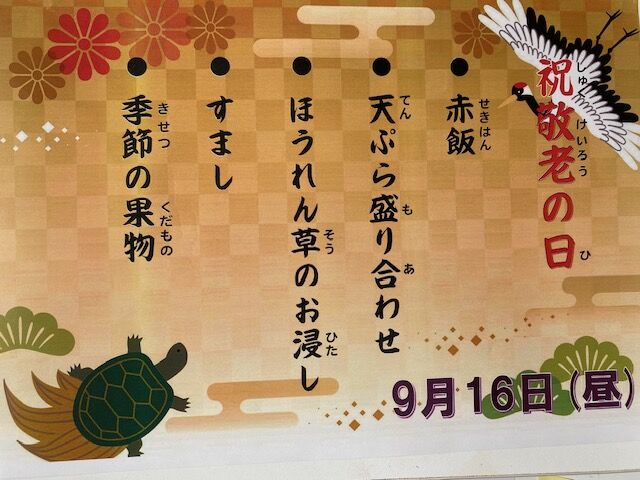 祝敬老の日
しゅく けいろう ひ
● 赤飯
せきはん
● 天ぷら盛り合わせ
てん も あ
● ほうれん草のお浸し
そう ひた
● すまし
● 季節の果物
きせつ くだもの
9月16日(昼)